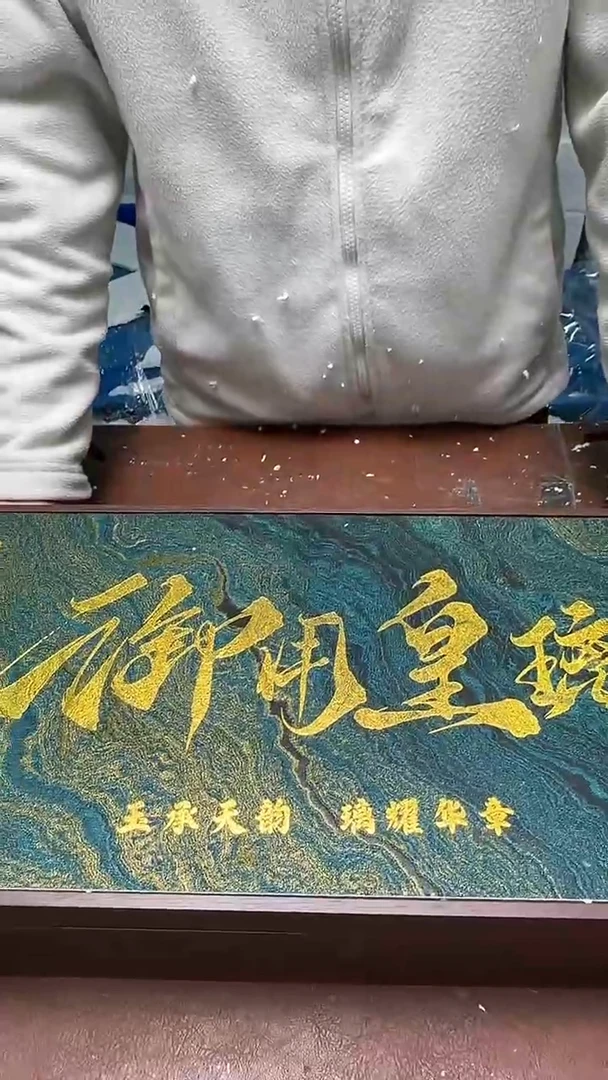 御用皇璃
玉承天韵 璃耀华章